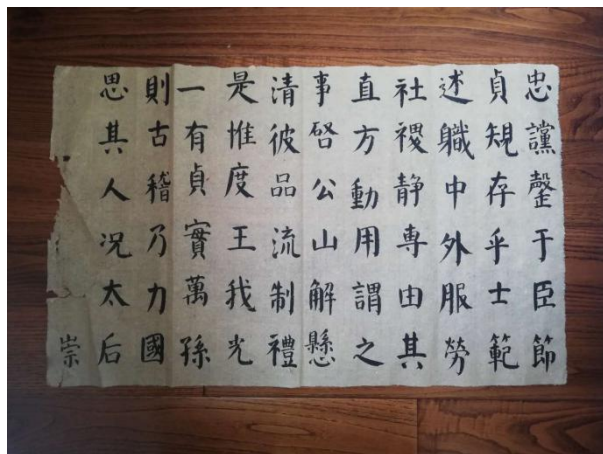 忠讜罄于臣節
貞規存乎士範
述職中外服勞
社稷静專由其
直方動用謂之
事啓公山解懸
清彼品流制禮
是惟度王我光
一有貞實萬孫
則古稽乃力國
思其人况太后
崇